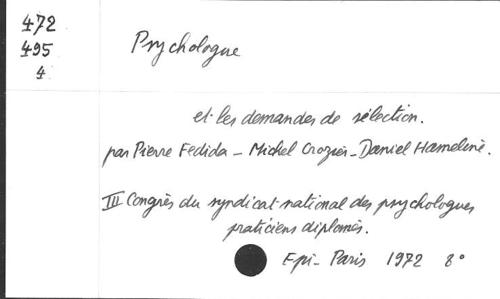 472
495
4
Psychologue
et les demandes de sélection.
par Pierre Fedida - Michel Crozier - Daniel Hameline.
III Congrès du syndicat national des psychologues
praticiens diplomés.
Epi - Paris 1972 8°